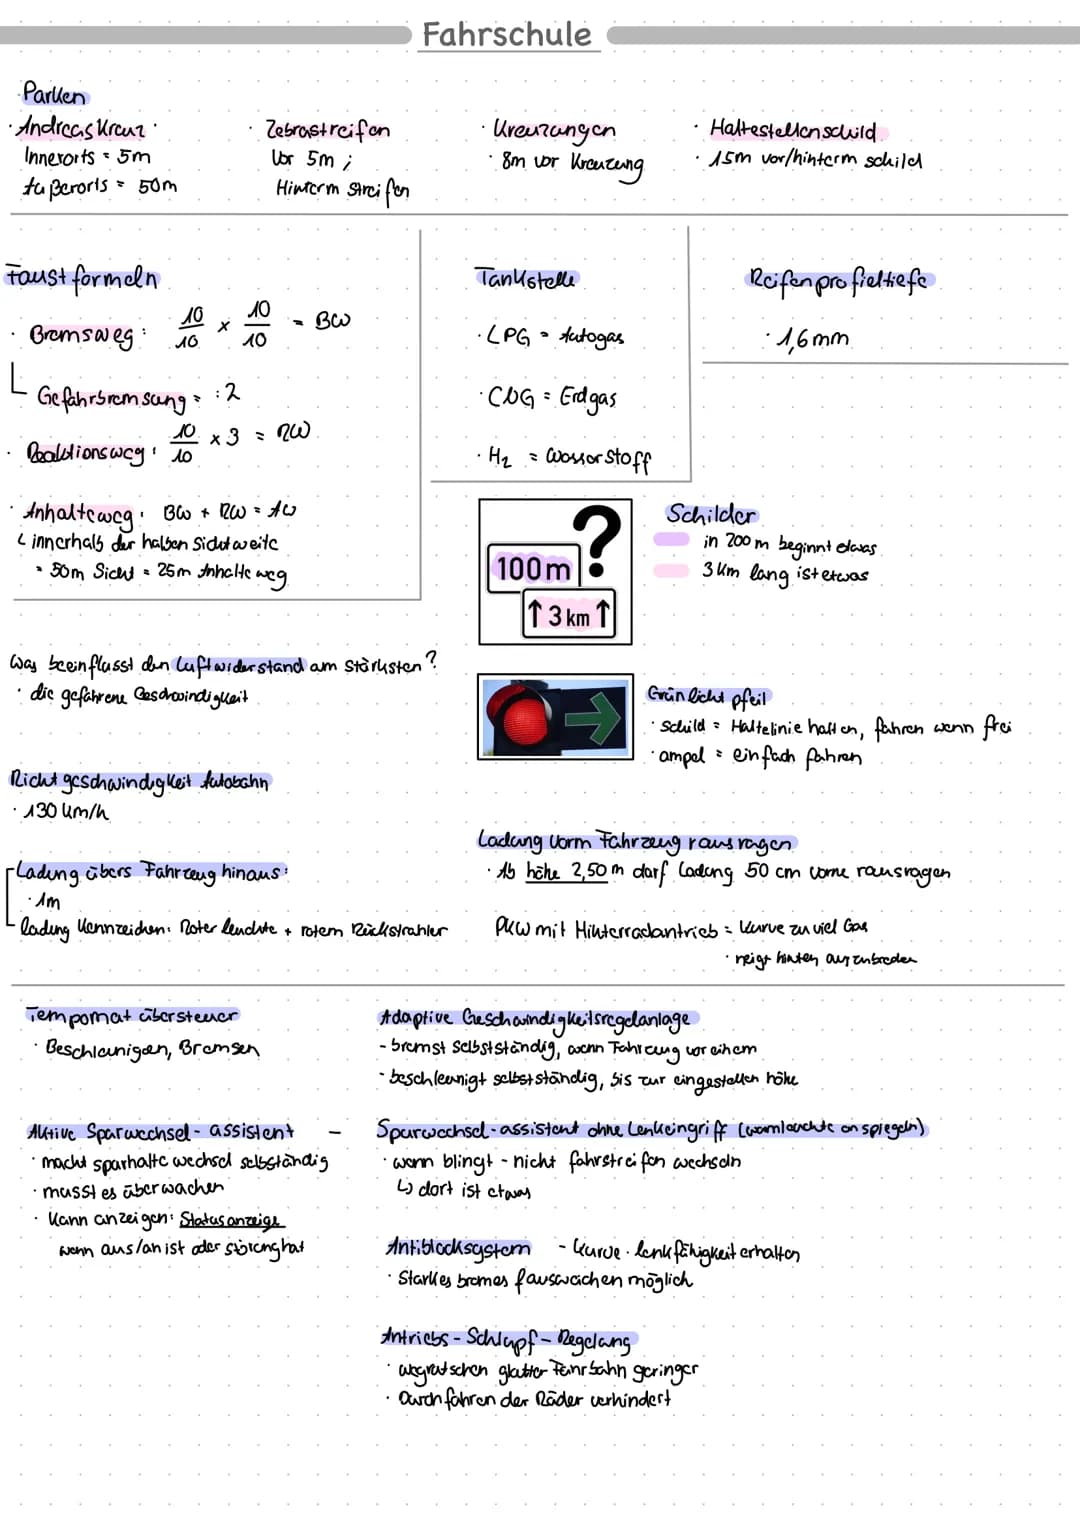 Fahrschule
Parken
· Andreas Kreuz ·
Innerorts = 5m
Außerorts = 50m
· Zebrastreifen
Vor 5m ;
Hinterm Streifen
· Kreuzungen
· 8m vor Kreuzung
· Haltestellenschild
· 15m vor/hinterm schild
Faustformeln
· Bremsweg : 10/10 x 10/10 = BW
Gefahrbremsung = :2
· Reaktionsweg : 10/10 x 3 = RW
· Anhalteweg : BW + RW = AW
innerhalb der halben Sichtweite
= 50m Sicht = 25m Anhalteweg
Tankstelle
· LPG = Autogas
· CNG = Erdgas
· H₂ = Wasserstoff
Reifenprofieltiefe
· 1,6mm
?
100m
↑ 3 km ↑
Schilder
in 200m beginnt etwas
3km lang ist etwas
Was beeinflusst den Luftwiderstand am stärksten?
· die gefahrene Geschwindigkeit
Grünlicht pfeil
· Schild = Haltelinie halten, fahren wenn frei
· ampel = einfach fahren
Richtgeschwindigkeit Autobahn
· 130 km/h
Ladung übers Fahrzeug hinaus:
· 1m
ladung Kennzeichen: Roter leuchte + rotem Rückstrahler
Ladung Vorm Fahrzeug rausragen
· Ab höhe 2,50m darf Ladung 50 cm vorne rausragen
PKW mit Hinterradantrieb = Kurve zu viel Gas
· neigt hinten auszubrechen
Tempomat übersteuer
· Beschleunigen, Bremsen
Adaptive Geschwindigkeitsregelanlage
- bremst selbstständig, wenn Fahrzeug vor einem
- beschleunigt selbstständig, bis zur eingestellen höhe
Aktive Spurwechsel - assistent -
· macht spurhalte wechsel selbständig
· musst es überwachen
· Kann anzeigen: Statusanzeige
wenn aus/an ist oder störung hat
Spurwechsel - assistent ohne Lenkeingriff (warnleuchte an spiegeln)
· wenn blingt - nicht fahrstreifen wechseln
↳ dort ist etwas
Antiblocksystem - Kurve · lenkfähigkeit erhalten
· Starkes bremes &ausweichen möglich
Antriebs - Schlupf - Regelung
· wegrutschen glatter Fahrbahn geringer
· Durchfahren der Räder verhindert